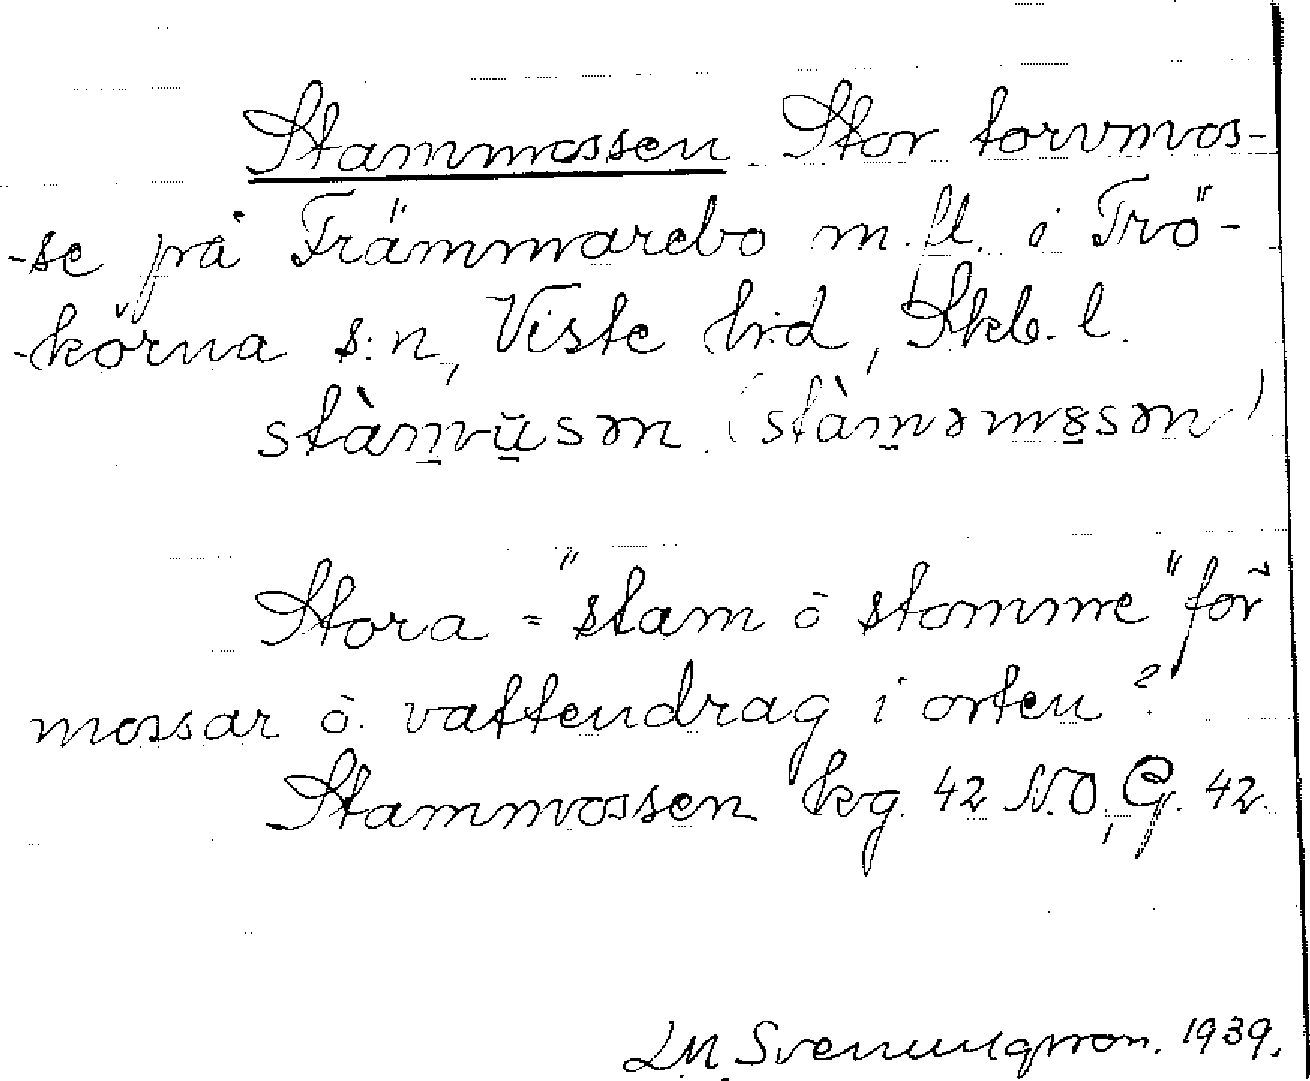 Stammossen Stor torvmos-
-se på Främmarebo m.fl. i Trö-
-körna s:n, Viste h:d, Skb. l.
Stora = "stam o stomme" för
mossar o. vattendrag i orten?
Stammossen kg. 42 N.O, G. 42.
L.M. Svenungsson. 1939.